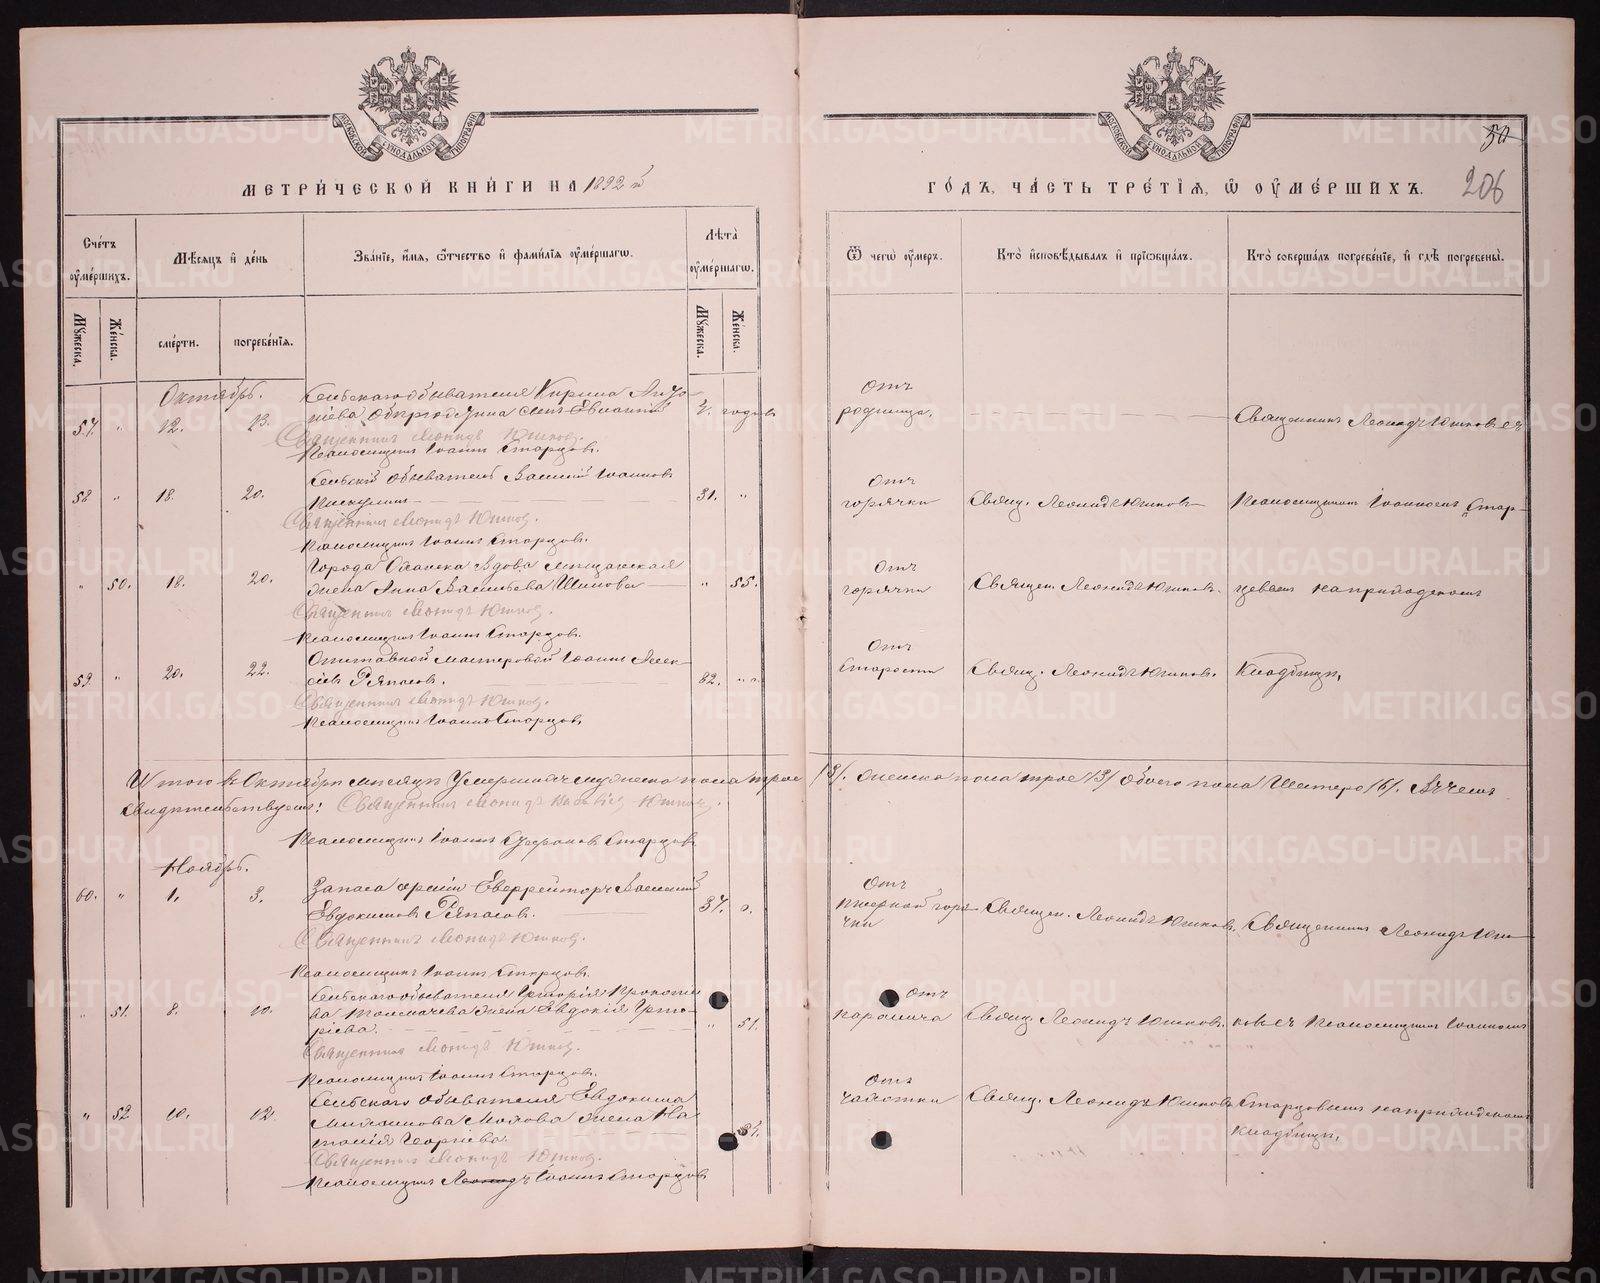 МЕТРИЧЕСКОЙ КНИГИ НА 1892 й
Счетъ оумершихъ.
Мѣсяцъ и день
Званіе, имя, отчество и фамилія оумершагω.
Лѣта оумершагω.
Мужеска.
Женска.
смерти.
погребенія.
Мужеска.
Женска.
Октябрь.
Сельскаго обывателя Кирила
57. " 12. 13.
годовъ
Священникъ Леонидъ Юшковъ.
Псаломщикъ Іоаннъ Старцовъ.
Сельскій обыватель Василій Іоанновъ
58 " 18. 20.
31. "
Священникъ Леонидъ Юшковъ.
Псаломщикъ Іоаннъ Старцовъ.
Города Оханска вдова мѣщанская
" 50. 18. 20. жена Анна Васильева " 55.
Священникъ Леонидъ Юшковъ.
Псаломщикъ Іоаннъ Старцовъ.
Отставной мастеровой Іоаннъ Алек-
59. " 20. 22. сіевъ Ряпасовъ. 82. "
Священникъ Леонидъ Юшковъ.
Псаломщикъ Іоаннъ Старцовъ
Итого въ Октябрѣ мѣсяцѣ Умершихъ мужеска пола трое /3/. женска пола трое /3/ обоего пола Шестеро /6/. Въ чемъ
свидѣтельствуемъ: Священникъ Леонидъ Юшковъ.
Псаломщикъ Іоаннъ Старцовъ
Ноябрь.
60. " 1. 3. Запаса арміи Еверрейторъ Василій
Евдокимовъ Ряпасовъ. 37.
Священникъ Леонидъ Юшковъ.
Псаломщикъ Іоаннъ Старцовъ.
Сельскаго обывателя Григорія Прокопье-
" 51. 8. 10. ва Толмачева жена Евдокія Григо-
рьева. " 51.
Священникъ Леонидъ Юшковъ.
Псаломщикъ Іоаннъ Старцовъ.
Сельскаго обывателя Евдокима
" 52 10. 12. жена На-
талія Георгіева. 34.
Священникъ Леонидъ Юшковъ.
Псаломщикъ Леонидъ Іоаннъ Старцовъ
МОСКОВСКОЙ СУНОДАЛЬНОЙ ТИПОГРАФІИ
50
ГОДЪ, ЧАСТЬ ТРЕТІЯ, Ѿ ОУМЕРШИХЪ.
206
Ѿ чегω оумеръ.
Кто исповѣдывалъ и пріωбщалъ.
Кто совершалъ погребеніе, и гдѣ погребены.
Отъ
родимца.
Священникъ Леонидъ Юшковъ съ
Отъ
горячки Свящ. Леонидъ Юшковъ Псаломщикомъ Іоанномъ Стар-
Отъ
горячки Священ. Леонидъ Юшковъ. цевымъ на приходскомъ
Отъ
старости Свящ. Леонидъ Юшковъ. Кладбищѣ.
Отъ
горя-
чки Священ. Леонидъ Юшковъ. Священникъ Леонидъ Юш-
Отъ
паралича Свящ. Леонидъ Юшковъ. ковъ съ Псаломщикомъ Іоанномъ
Отъ
чахотки Свящ. Леонидъ Юшковъ Старцовымъ на приходскомъ
Кладбищѣ.
МОСКОВСКОЙ СУНОДАЛЬНОЙ ТИПОГРАФІИ
METRIKI.GASO-URAL.RU